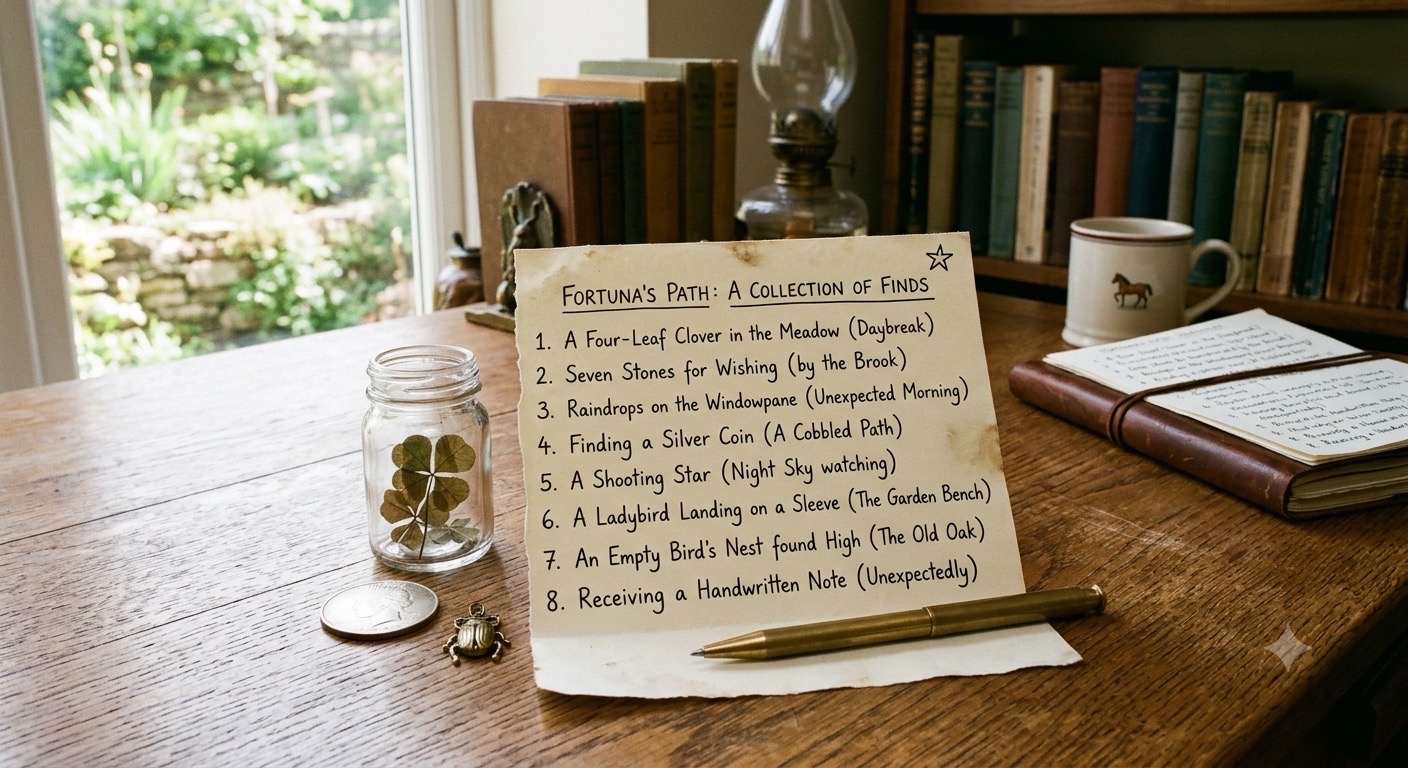 FORTUNA'S PATH: A COLLECTION OF FINDS
1. A Four-Leaf Clover in the Meadow (Daybreak)
2. Seven Stones for Wishing (by the Brook)
3. Raindrops on the Windowpane (Unexpected Morning)
4. Finding a Silver Coin (A Cobbled Path)
5. A Shooting Star (Night Sky watching)
6. A Ladybird Landing on a Sleeve (The Garden Bench)
7. An Empty Bird's Nest found High (The Old Oak)
8. Receiving a Handwritten Note (Unexpectedly)